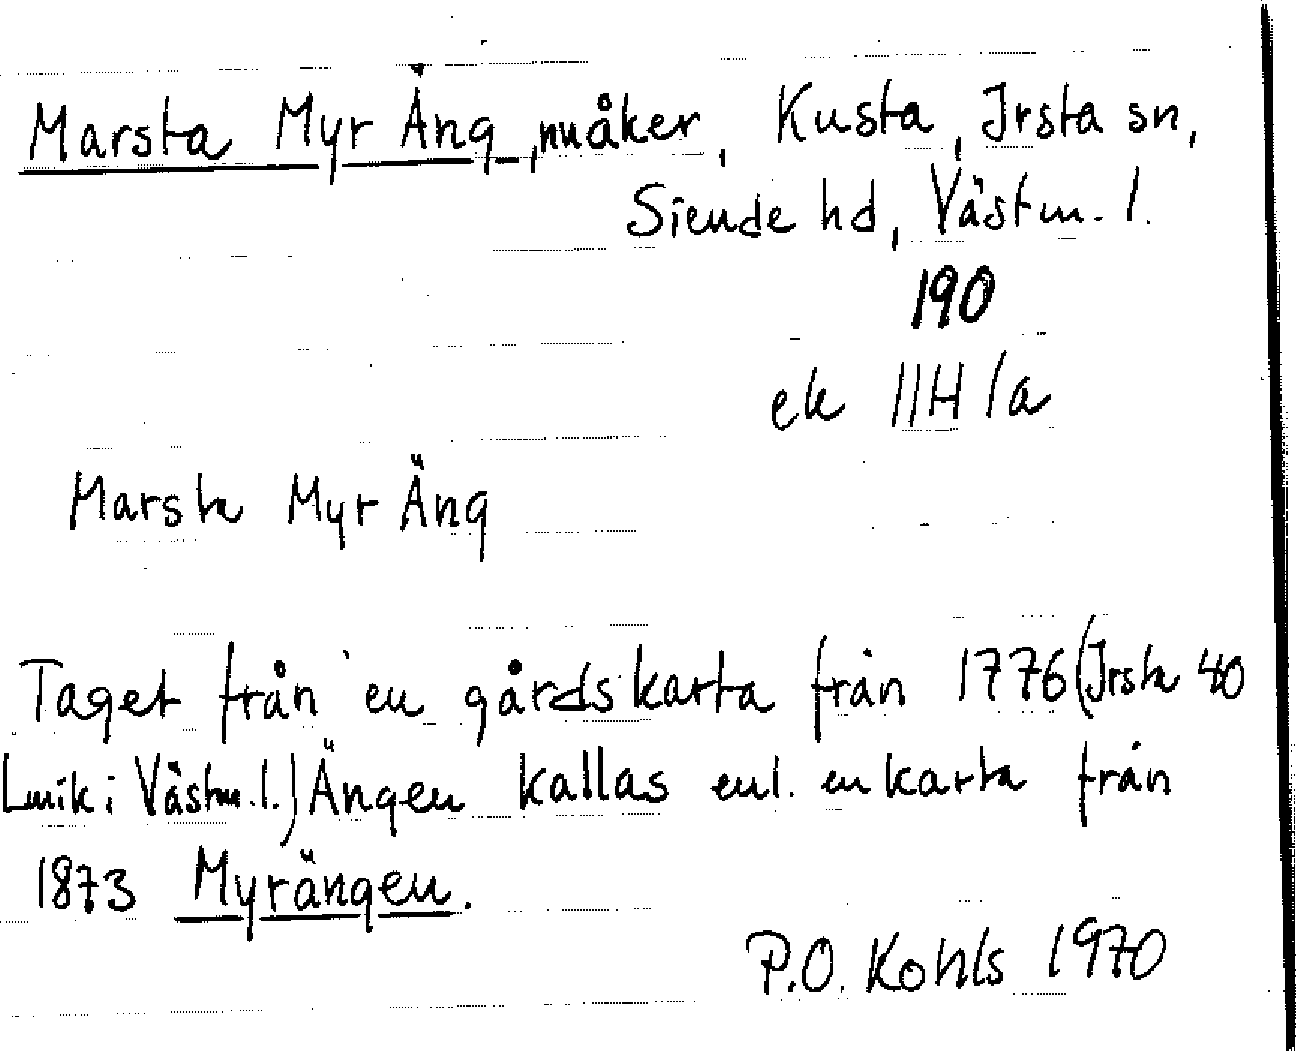 Marsta Myr Äng, nu åker, Kusta, Irsta sn,
Siende hd, Västm. l.
190
ek 11H 1a
Marsta Myr Äng
Taget från en gårdskarta från 1776 (Irsta 40
Lmk i Västm. l.) Ängen kallas enl. en karta från
1873 Myrängen.
P.O. Kohls 1970